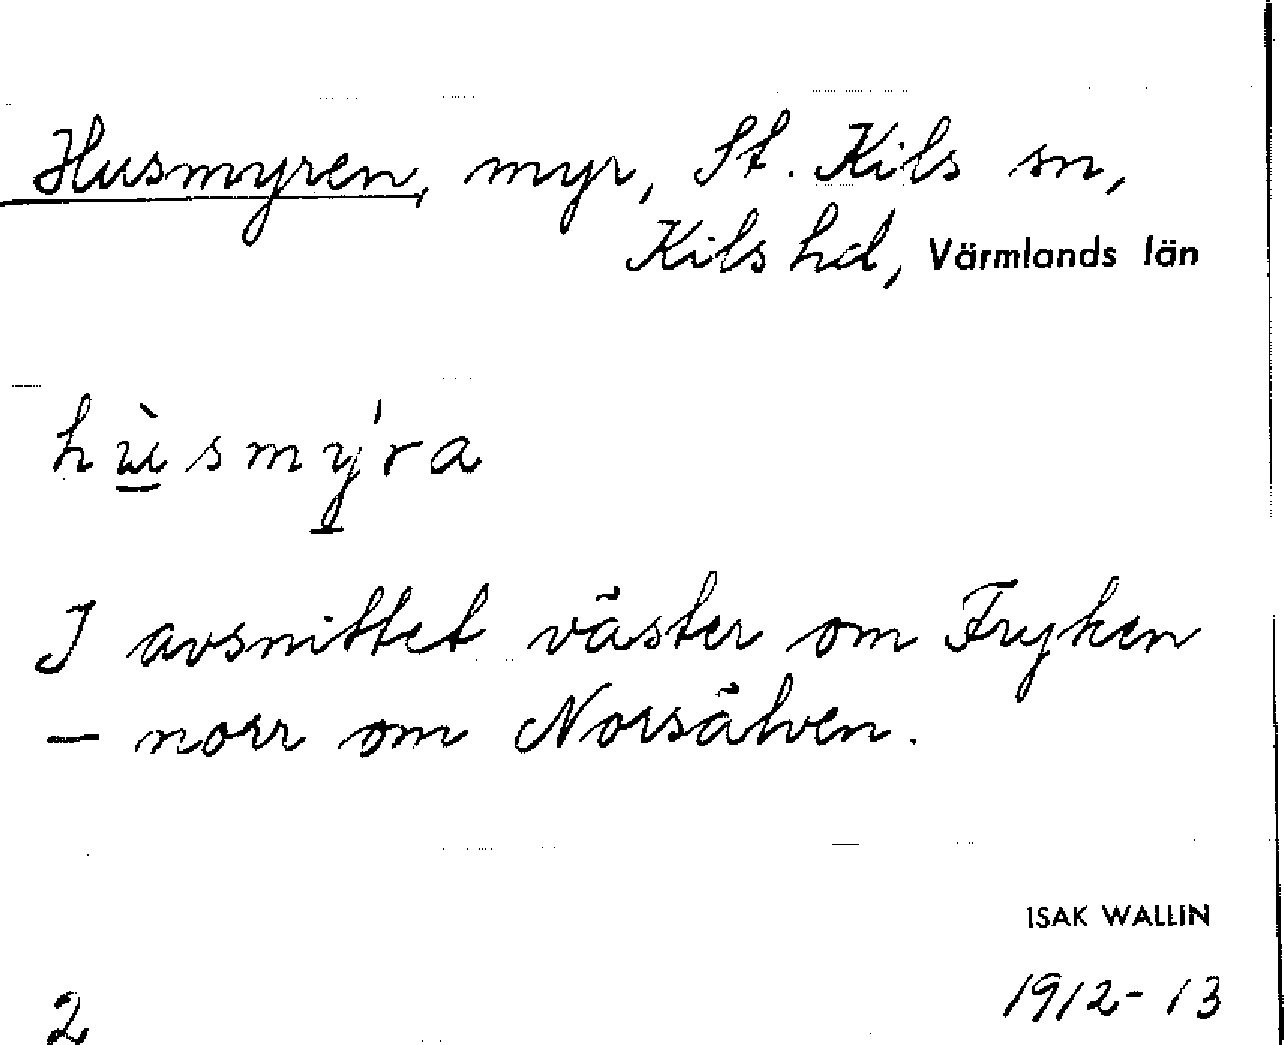 Husmyren, myr, St. Kils sn,
Kils hd, Värmlands län
hùsmýra
I avsnittet väster om Fryken
– norr om Norsälven.
ISAK WALLIN
1912-13
2